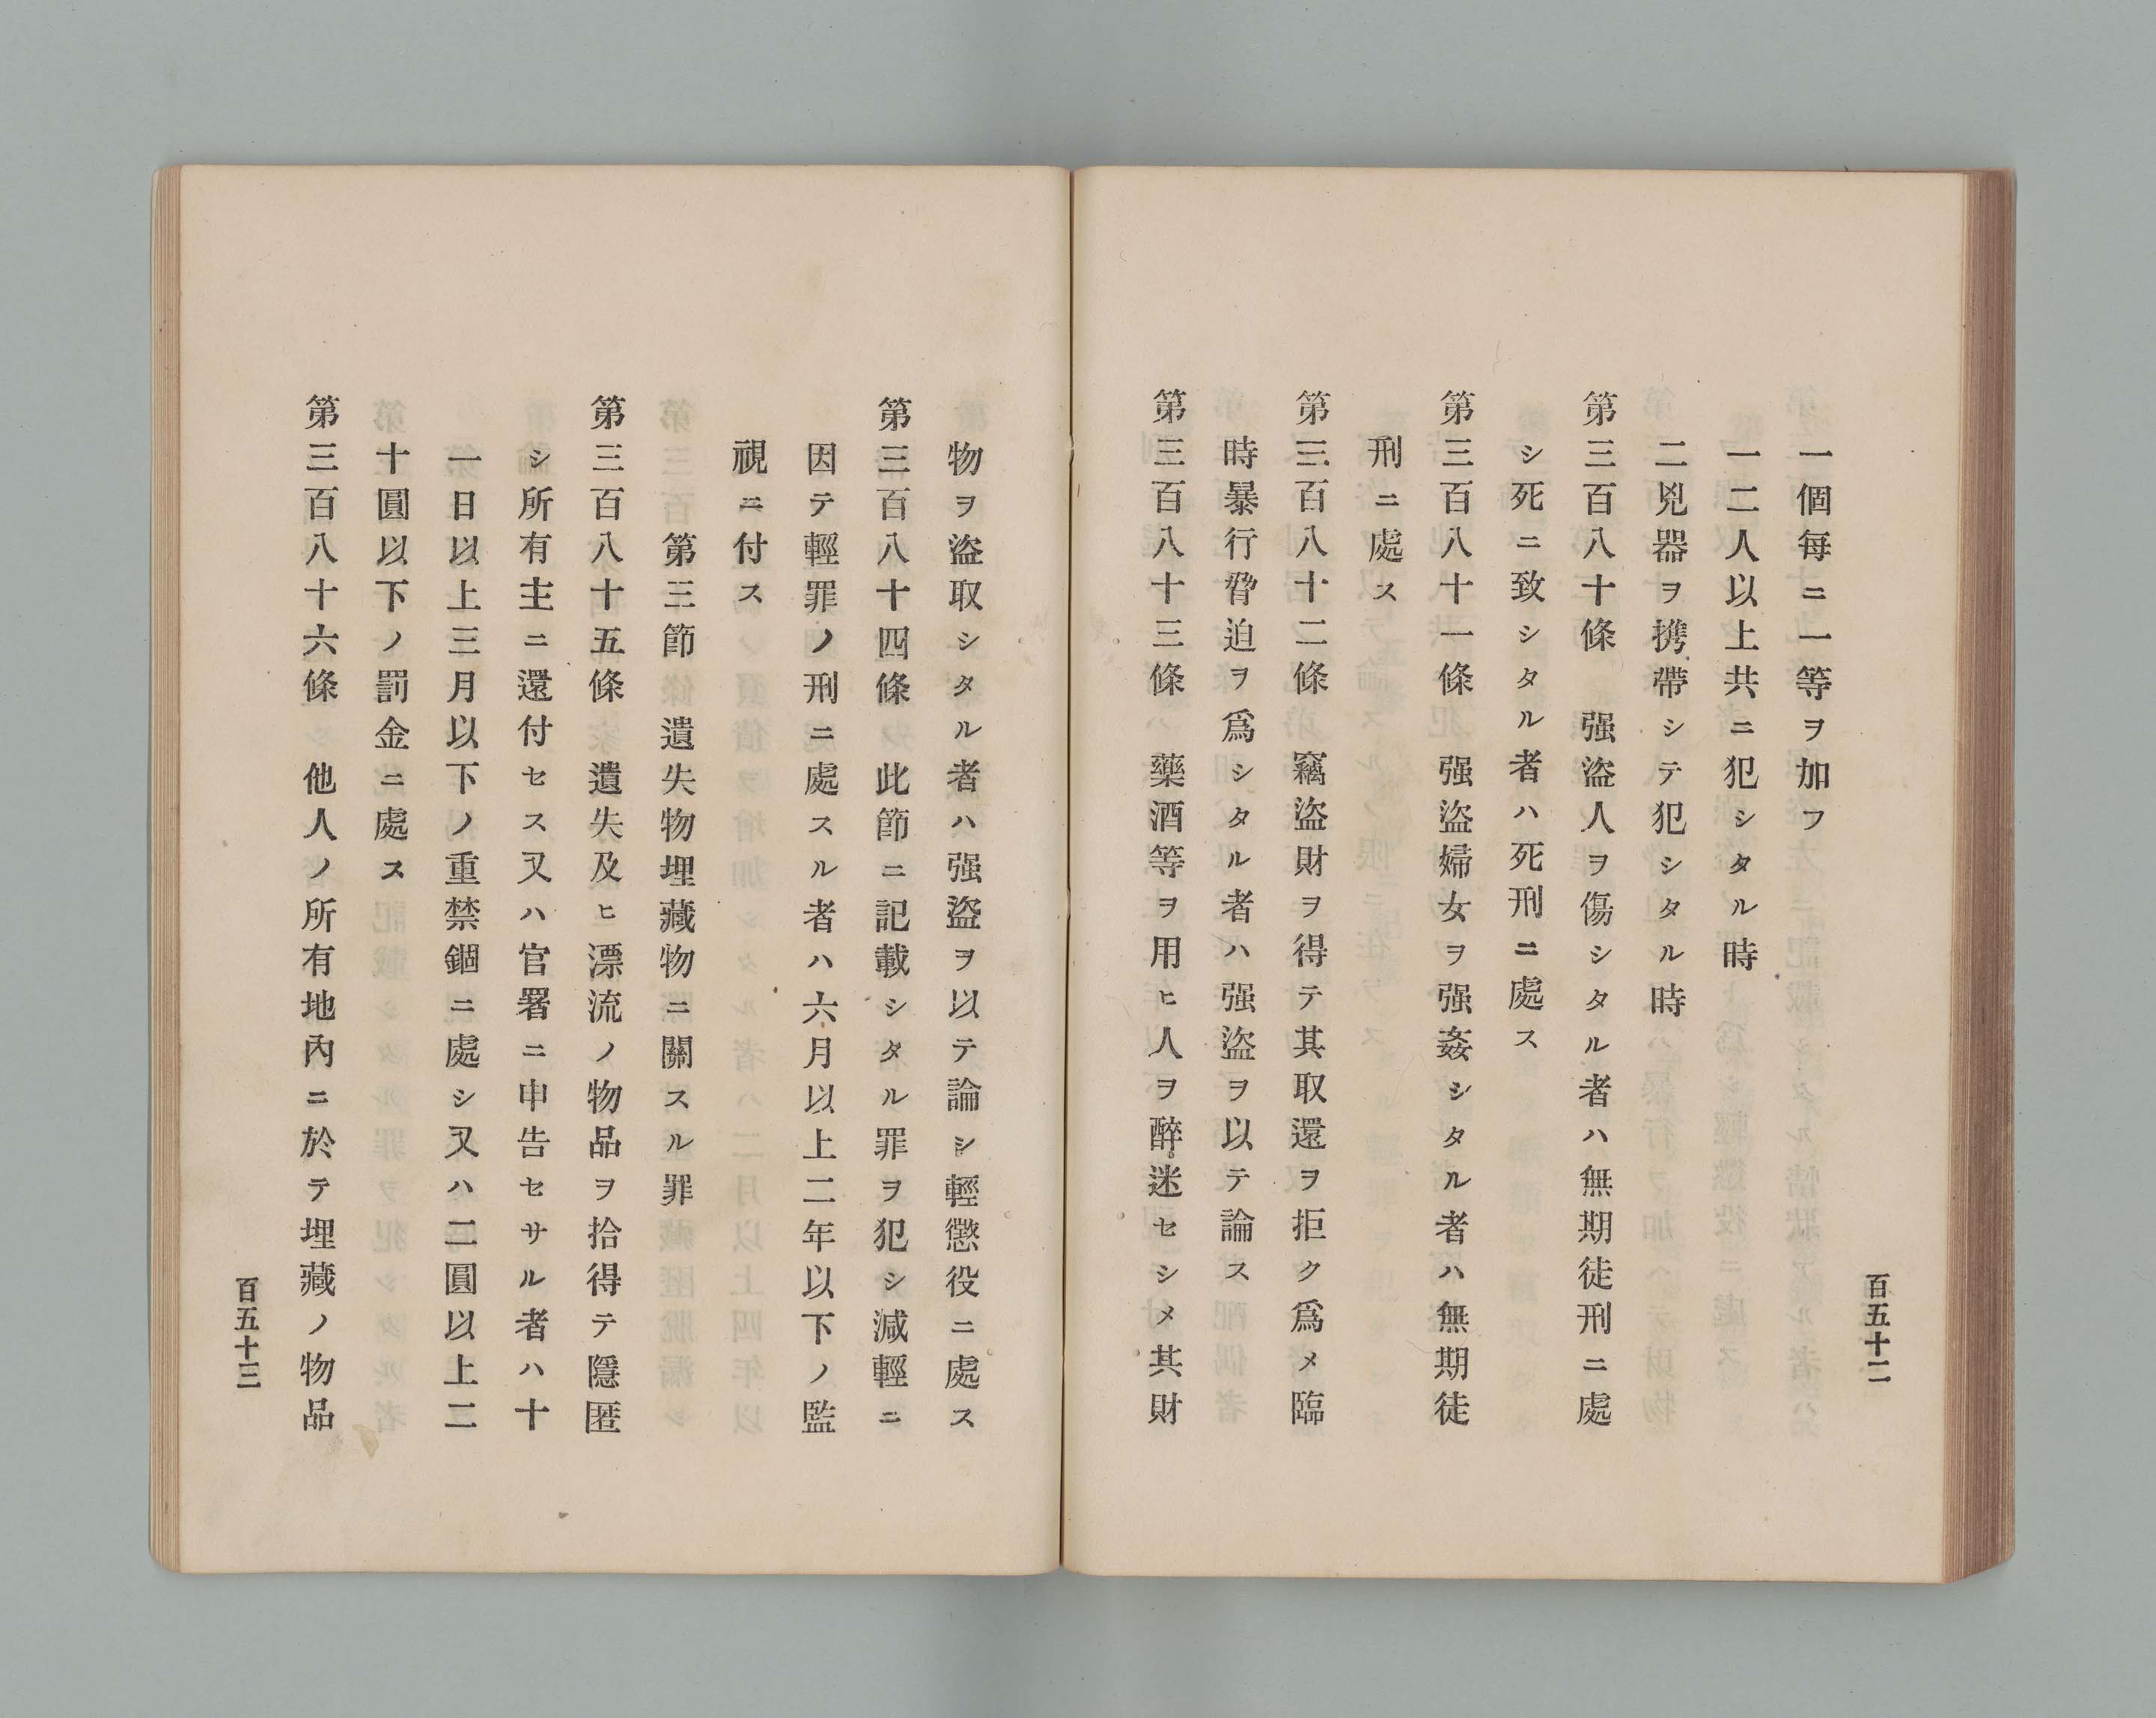 一個每ニ一等ヲ加フ
一二人以上共ニ犯シタル時
二兇器ヲ携帶シテ犯シタル時
第三百八十條　强盜人ヲ傷シタル者ハ無期徒刑ニ處
シ死ニ致シタル者ハ死刑ニ處ス
第三百八十一條　强盜婦女ヲ强姦シタル者ハ無期徒
刑ニ處ス
第三百八十二條　竊盜財ヲ得テ其取還ヲ拒ク爲メ臨
時暴行脅迫ヲ爲シタル者ハ强盜ヲ以テ論ス
第三百八十三條　藥酒等ヲ用ヒ人ヲ醉迷セシメ其財
百五十二
物ヲ盜取シタル者ハ强盜ヲ以テ論シ輕懲役ニ處ス
第三百八十四條　此節ニ記載シタル罪ヲ犯シ減輕ニ
因テ輕罪ノ刑ニ處スル者ハ六月以上二年以下ノ監
視ニ付ス
第三節　遺失物埋藏物ニ關スル罪
第三百八十五條　遺失及ヒ漂流ノ物品ヲ拾得テ隱匿
シ所有主ニ還付セス又ハ官署ニ申告セサル者ハ十
一日以上三月以下ノ重禁錮ニ處シ又ハ二圓以上二
十圓以下ノ罰金ニ處ス
第三百八十六條　他人ノ所有地內ニ於テ埋藏ノ物品
百五十三